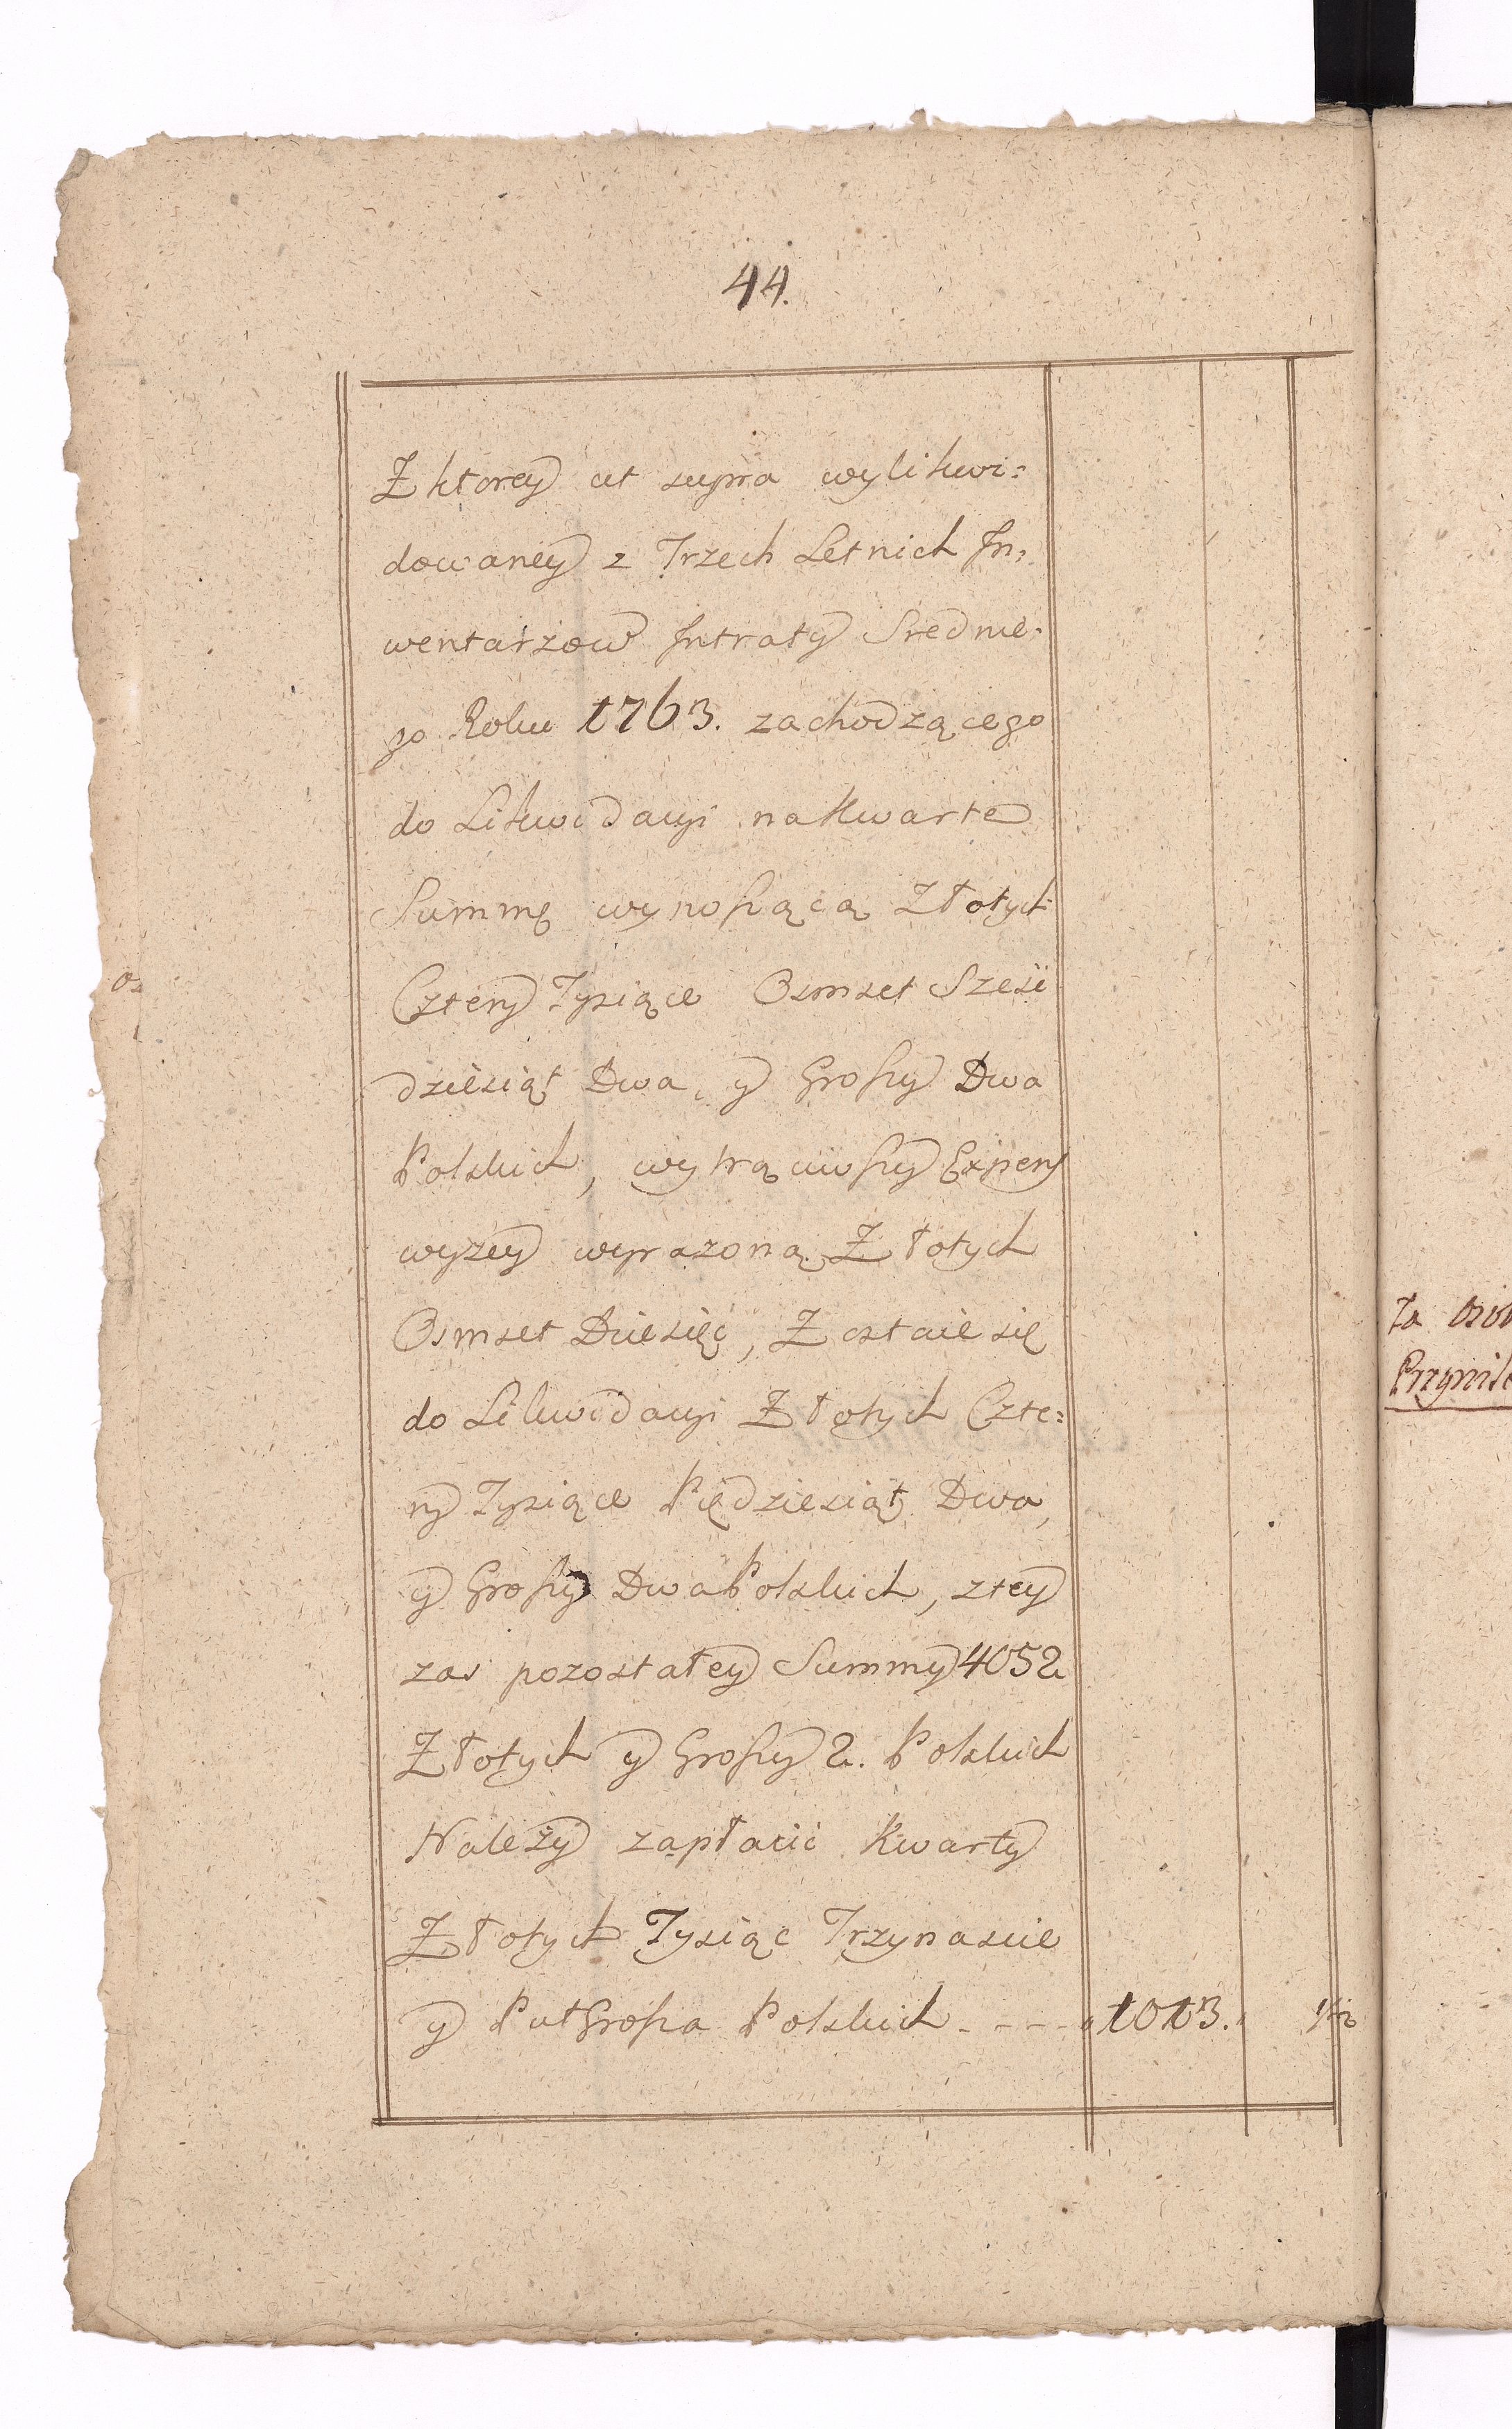 44.
Z ktorey ut supra wylikwi=
dowaney z Trzech Letnich In=
wentarzow Intraty Srednie=
go Roku 1763. zachodzącego
do Likwidacyi na Kwarte
Summę wynoszącą Złotych
Cztery Tysiące Osmset Szesc
dziesiąt Dwa, y Groszy Dwa
Polskich, wytrąciwszy Expens
wyzey wyrazoną Złotych
Osmset Dziesięć, Zostaie się
do Likwidacyi Złotych Czte=
ry Tysiące Piędziesiąt Dwa,
y Groszy Dwa Polskich, z tey
zas pozostałey Summy 4052
Złotych y Groszy 2. Polskich
Należy zapłacić Kwarty
Złotych Tysiąc Trzynascie
y Puł Grosza Polskich - - - - 1013. 1/2
Za